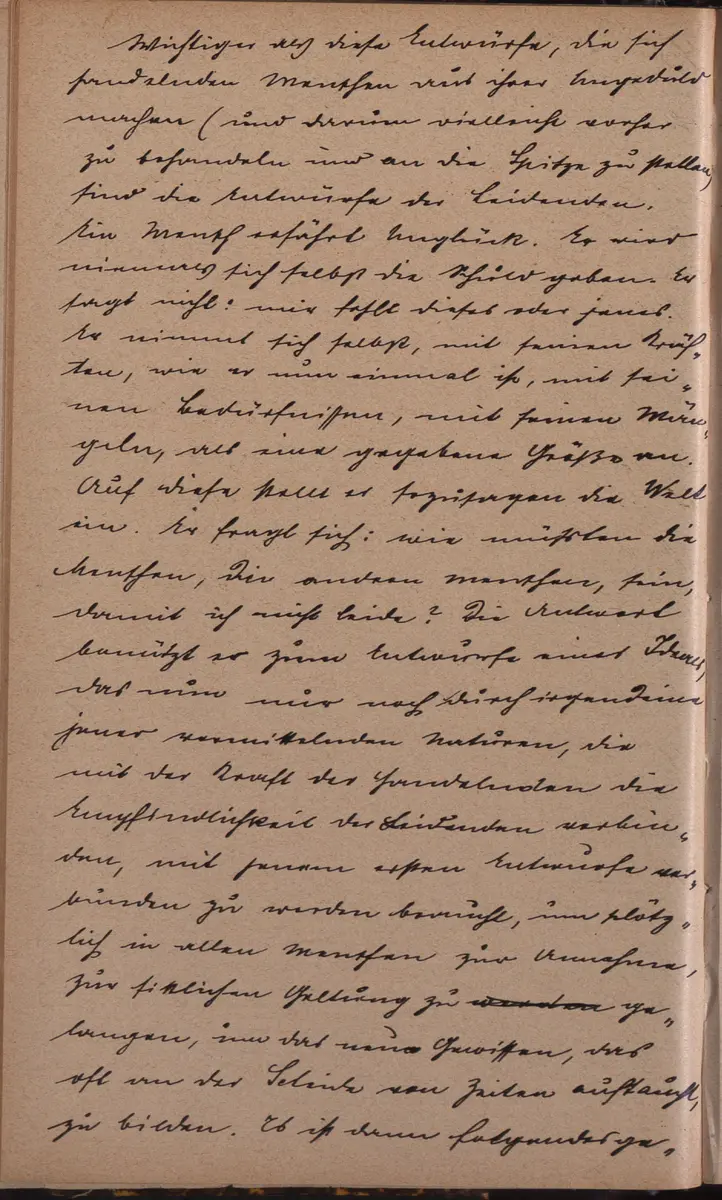 Wichtiger als diese Entwürfe, die sich
handelnden Menschen aus ihrer Ungeduld
machen (und darum vielleicht vorher
zu behandeln und an die Spitze zu stellen,
sind die Entwürfe der Leidenden.
Ein Mensch erfährt Unglück. Er wird
niemals sich selbst die Schuld geben. Er
sagt nicht: mir fehlt dieses oder jenes.
Er nimmt sich selbst, mit seinen Kräf„
ten, wie er nun einmal ist, mit sei„
nen Bedürfnissen, mit seinen Män„
geln, als eine gegebene Größe an.
Auf diese stellt er sozusagen die Welt
ein. Er fragt sich: wie müßten die
Menschen, die andern Menschen, sein,
damit ich nicht leide? Die Antwort
benützt er zum Entwurfe eines Ideals,
das nun nur noch durch irgendeine
jener vermittelnden Naturen, die
mit der Kraft der Handelnden die
Empfindlichkeit der Leidenden verbin„
den, mit jenem ersten Entwurfe ver„
bunden zu werden braucht, um plötz„
lich in allen Menschen zur Annahme,
zur sittlichen Geltung zu werden ge„
langen, um das neue Gewissen, das
oft an der Scheide von Zeiten auftaucht,
zu bilden. Es ist dann folgendes ge„